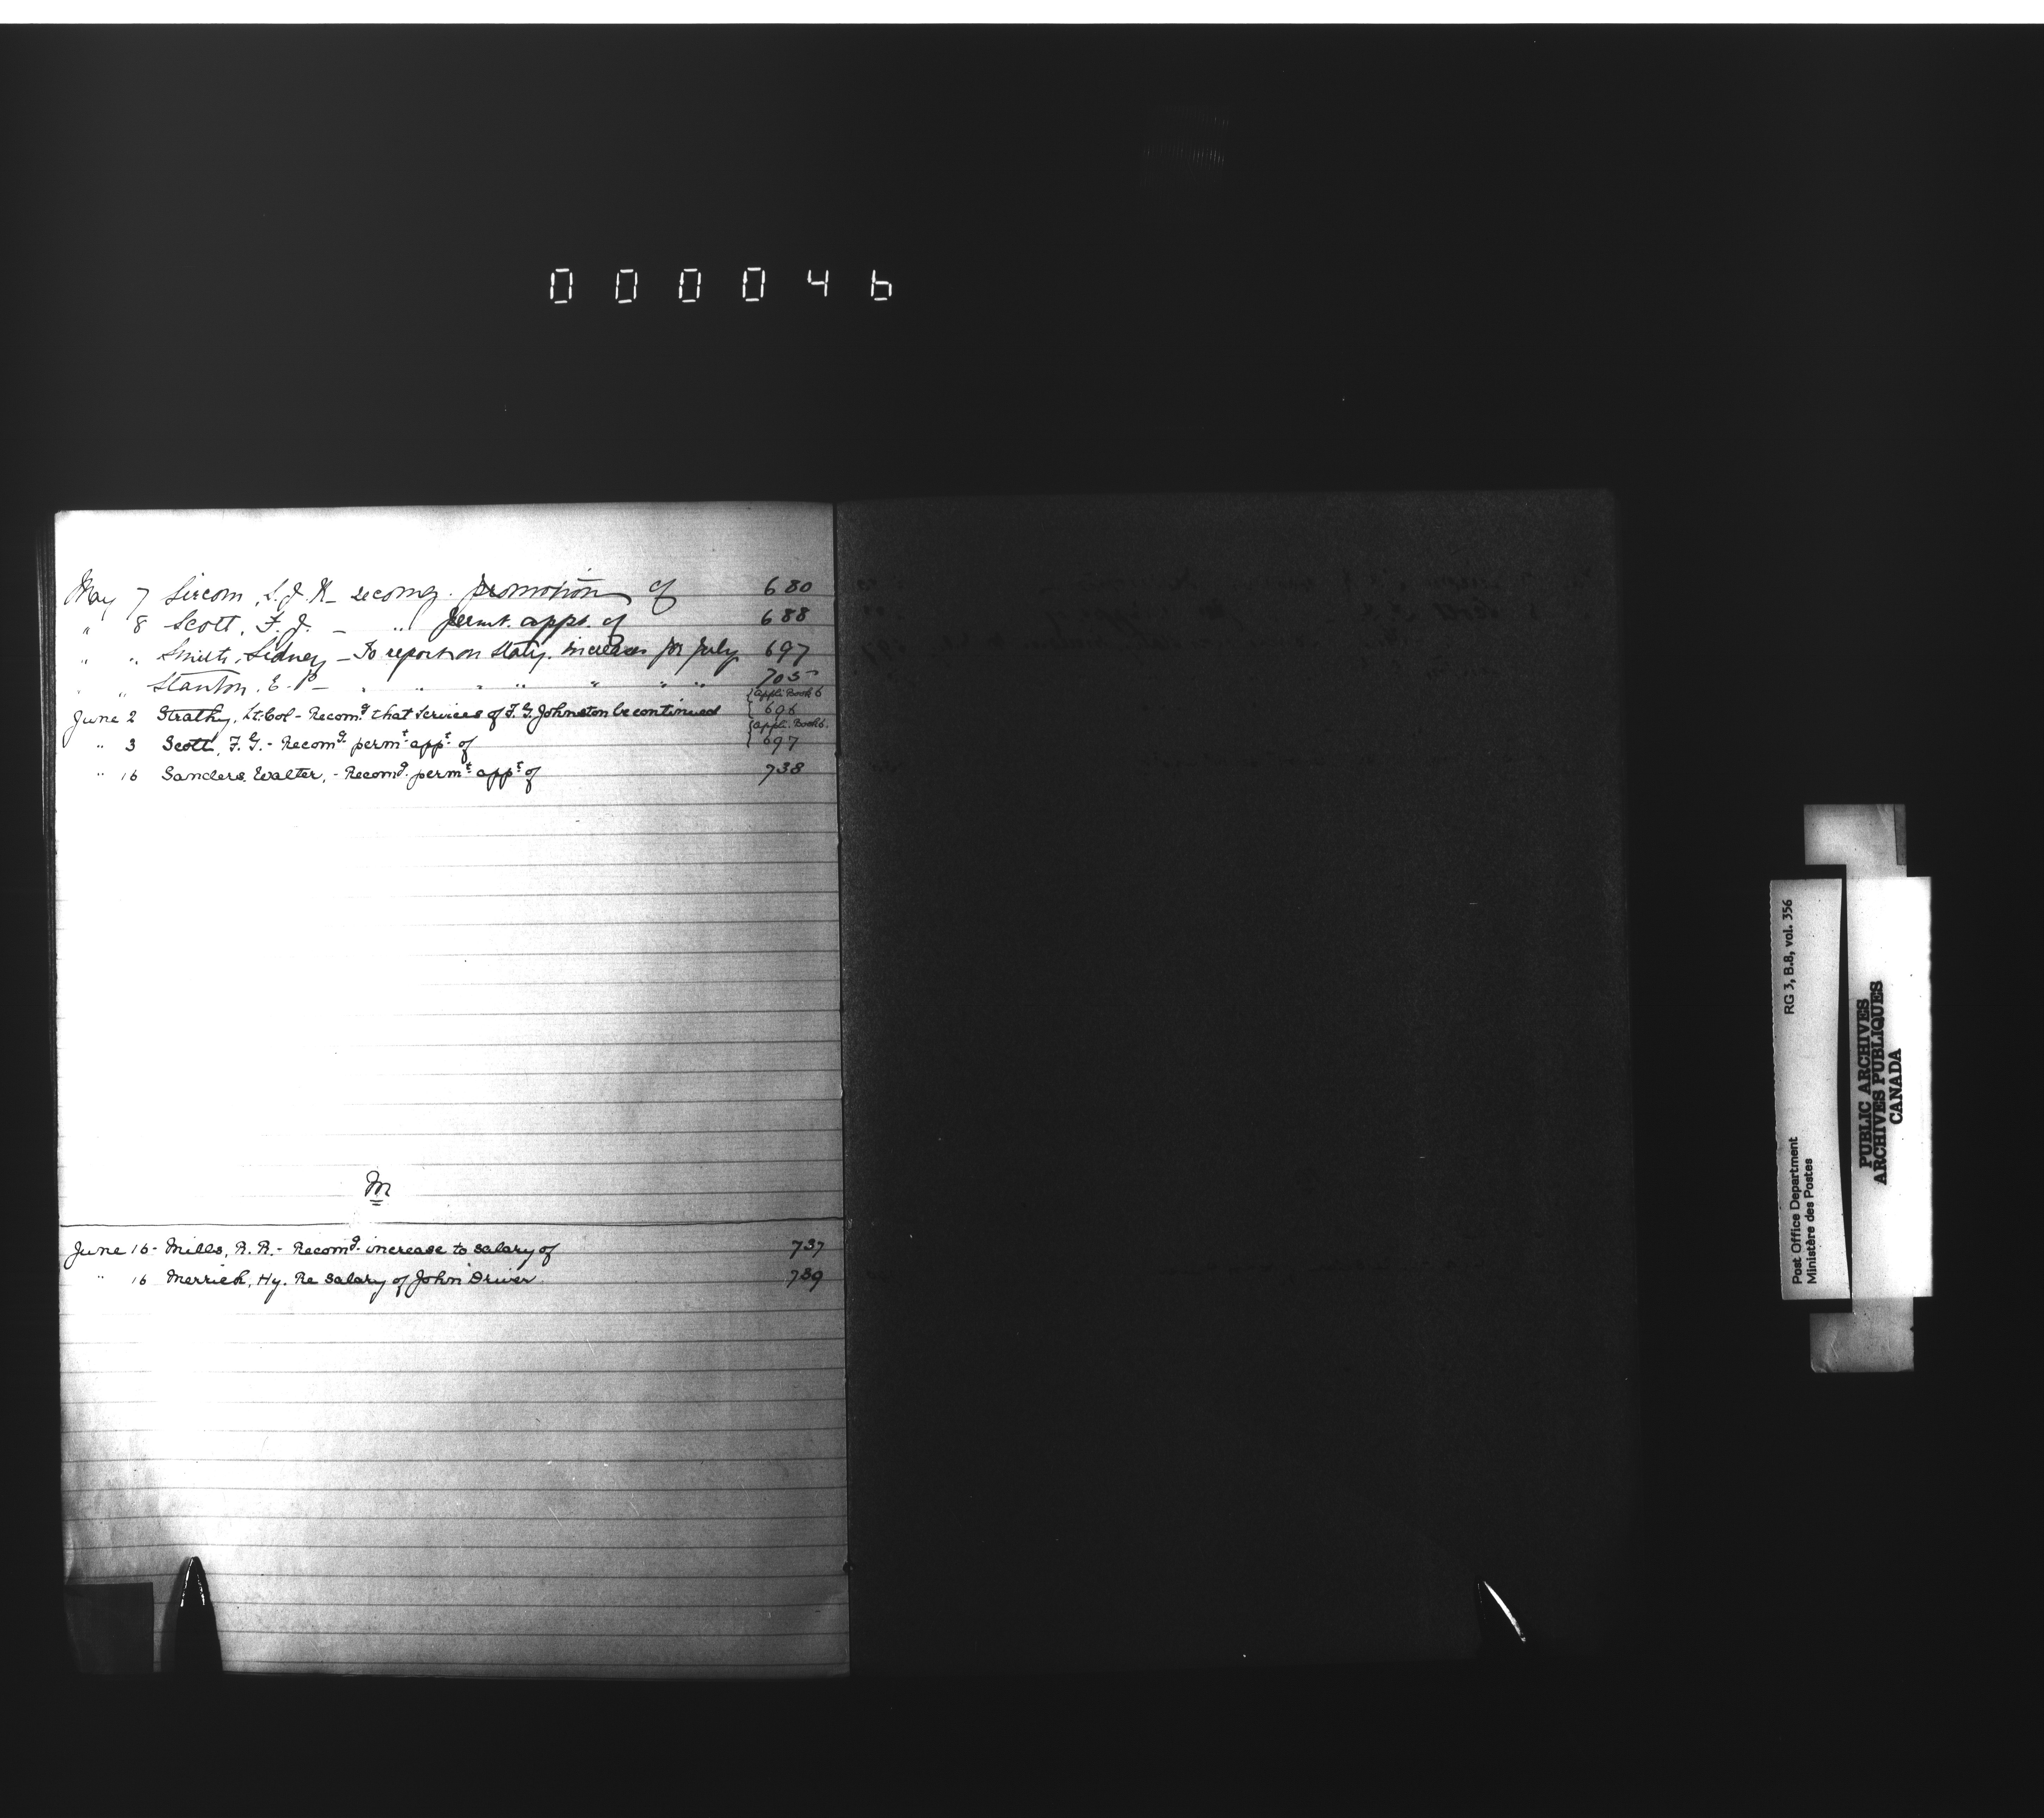 000046
May 7 Sircom, S.J.R - recomg. promotion of 680
" 8 Scott, F.J. - " permt. appt. of 688
" " Smith, Sidney - To report on Staty. increases for July 697
" " Stanton, E.P - " " " " " " " 705
{appli Book 6
June 2 Strathy, Lt: Col - Recomg that services of F.G. Johnston be continued 696
{appli. Book 6.
" 3 Scott, F.G. - Recomg. permt. appt. of 697
" 16 Sanders, Walter, - Recomg. permt appt of 738
M
June 16 - Mills, R.R. - Recomg. increase to salary of 737
" 16 Merrick, Hy. Re salary of John Driver 739
RG 3, B.8, vol. 356
Post Office Department
Ministère des Postes
PUBLIC ARCHIVES
ARCHIVES PUBLIQUES
CANADA